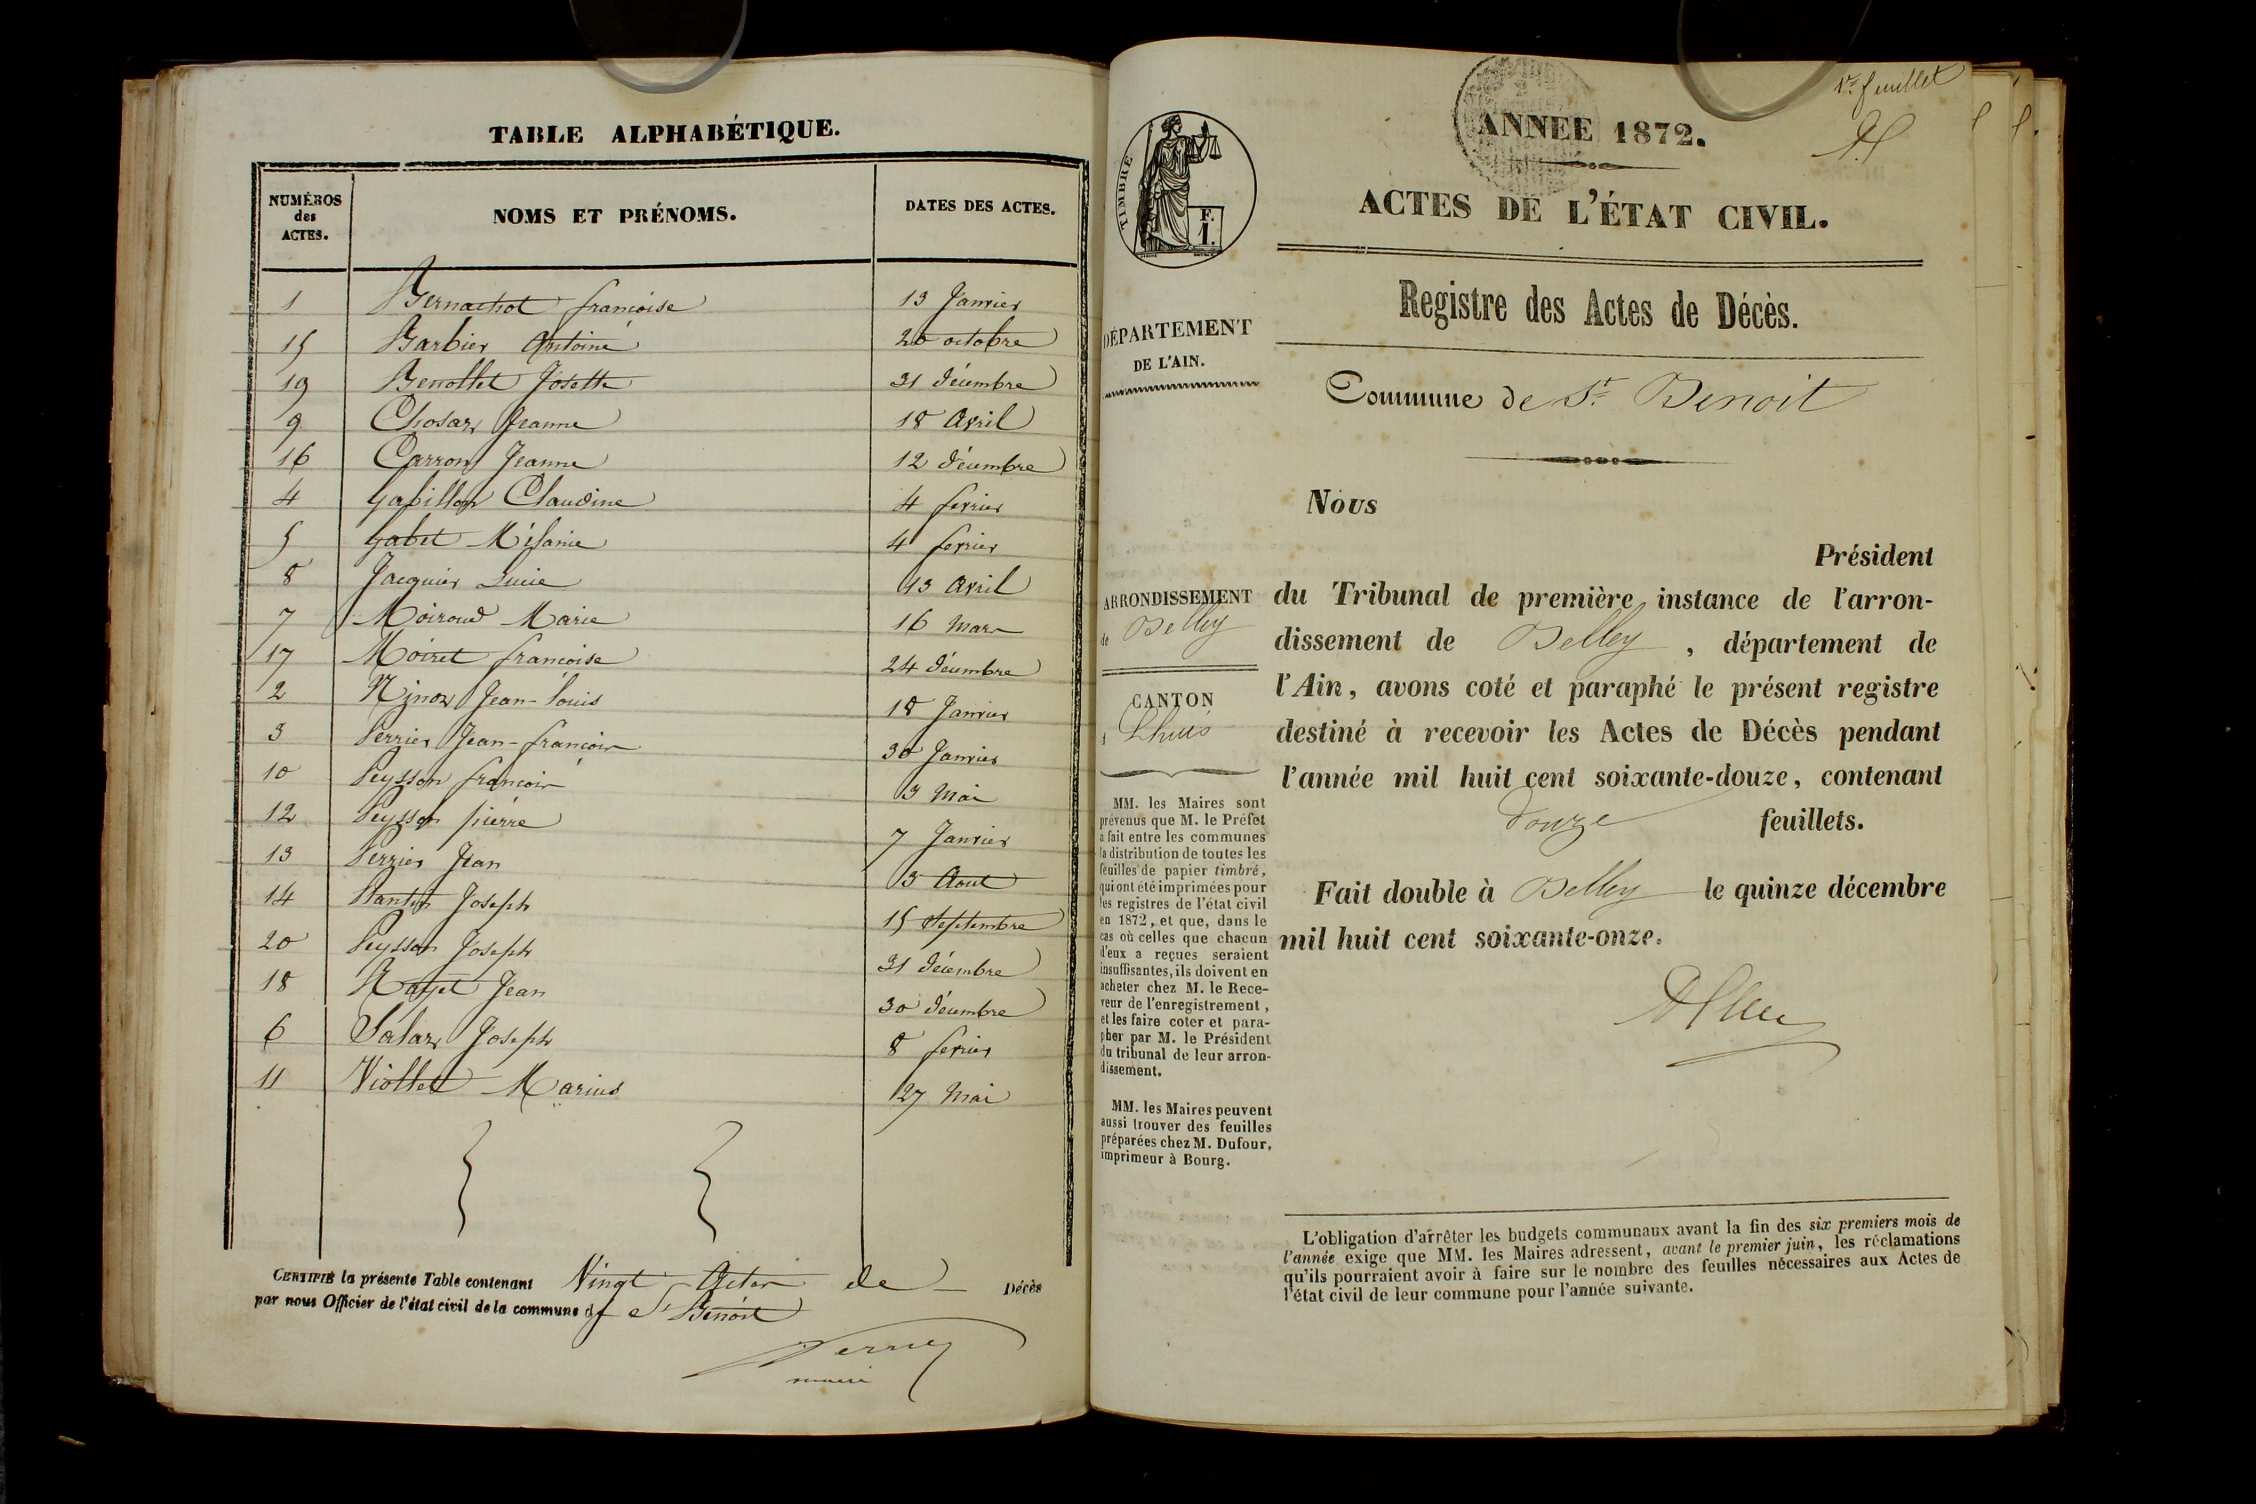 TABLE ALPHABÉTIQUE.
NUMÉROS des ACTES. NOMS ET PRÉNOMS. DATES DES ACTES.
1 Bernachot françoise 13 Janvier
15 Barbier Antoine 20 octobre
19 Benollet Josette 31 décembre
9 Chosar Jeanne 18 Avril
16 Carron Jeanne 12 décembre
4 Gabillon Claudine 4 fevrier
5 Gabet Mélanie 4 fevrier
8 Jacquier Lucie 13 Avril
7 Moiroud Marie 16 Mars
17 Moiret françoise 24 décembre
2 Jean-Louis 18 Janvier
3 Perrier Jean-françois 30 Janvier
10 Peysson françois 3 Mai
12 Peysson pierre 7 Janvier
13 Perrier Jean 3 Aout
14 Plantin Joseph 15 Septembre
20 Peysson Joseph 31 décembre
18 Rayet Jean 30 décembre
6 Salar Joseph 8 fevrier
11 Viollet Marius 27 Mai
CERTIFIÉ la présente Table contenant Vingt Actes de Décès
par nous Officier de l'état civil de la commune de St Benoit
Perrier
maire
1er feuillet
ANNEE 1872.
TIMBRE
F.
1.
ACTES DE L'ÉTAT CIVIL.
Registre des Actes de Décès.
DÉPARTEMENT
DE L'AIN.
Commune de St Benoit
Nous
Président
du Tribunal de première instance de l'arron-
dissement de Belley, département de
l'Ain, avons coté et paraphé le présent registre
destiné à recevoir les Actes de Décès pendant
l'année mil huit cent soixante-douze, contenant
douze feuillets.
Fait double à Belley le quinze décembre
mil huit cent soixante-onze.
ARRONDISSEMENT
de Belley
CANTON
Lhuis
MM. les Maires sont
prévenus que M. le Préfet
a fait entre les communes
la distribution de toutes les
feuilles de papier timbré,
qui ont été imprimées pour
les registres de l'état civil
en 1872, et que, dans le
cas où celles que chacun
d'eux a reçues seraient
insuffisantes, ils doivent en
acheter chez M. le Rece-
veur de l'enregistrement,
et les faire coter et para-
pher par M. le Président
du tribunal de leur arron-
dissement.
MM. les Maires peuvent
aussi trouver des feuilles
préparées chez M. Dufour,
imprimeur à Bourg.
L'obligation d'arrêter les budgets communaux avant la fin des six premiers mois de
l'année exige que MM. les Maires adressent, avant le premier juin, les réclamations
qu'ils pourraient avoir à faire sur le nombre des feuilles nécessaires aux Actes de
l'état civil de leur commune pour l'année suivante.